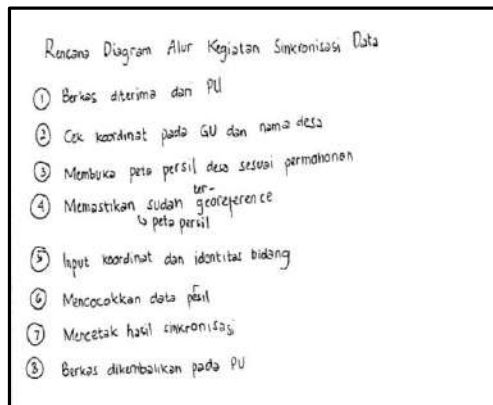 Rencana Diagram Alur Kegiatan Sinkronisasi Data
① Berkas diterima dari PU
② Cek koordinat pada GU dan nama desa
③ Membuka peta persil desa sesuai permohonan
④ Memastikan sudah ter-georeference
↳ peta persil
⑤ Input koordinat dan identitas bidang
⑥ Mencocokkan data persil
⑦ Mencetak hasil sinkronisasi
⑧ Berkas dikembalikan pada PU